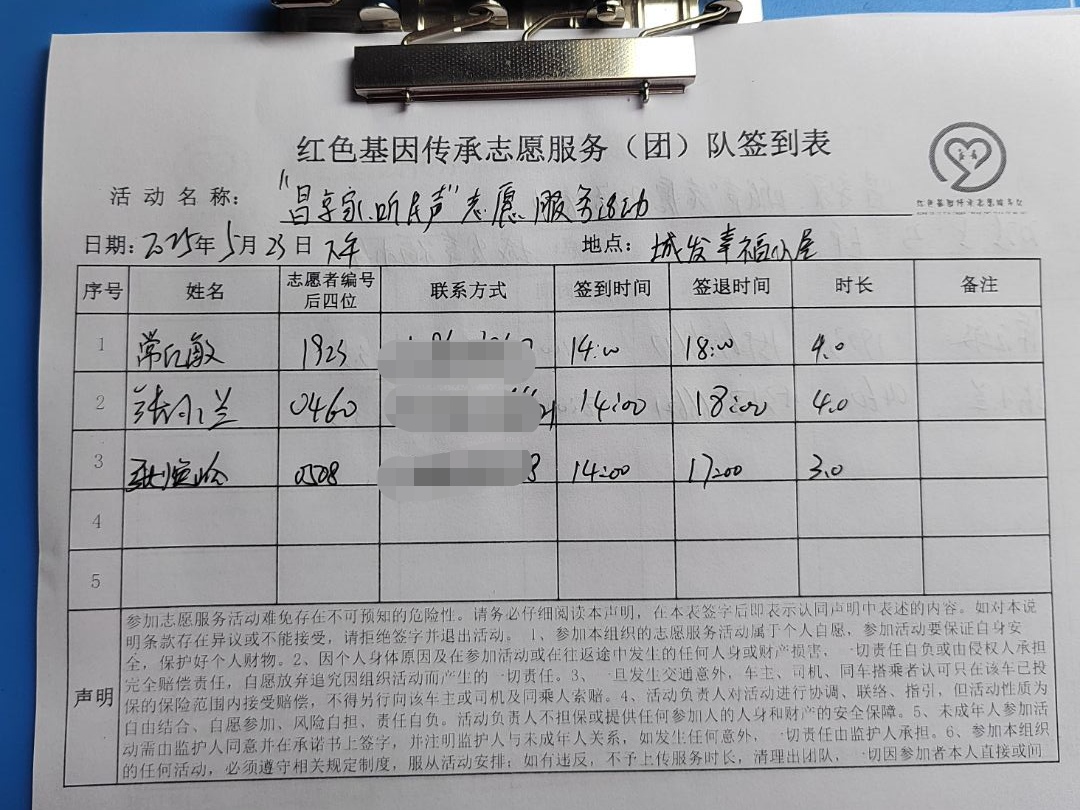 红色基因传承志愿服务（团）队签到表
活动名称："昌享家、听民声"志愿服务活动
日期：2025年5月23日 下午 地点：城发幸福小屋
序号 姓名 志愿者编号后四位 联系方式 签到时间 签退时间 时长 备注
1 常 敏 1923 14:00 18:00 4.0
2 张小兰 0460 14:00 18:00 4.0
3 0508 14:00 17:00 3.0
4
5
声明
参加志愿服务活动难免存在不可预知的危险性。请务必仔细阅读本声明，在本表签字后即表示认同声明中表述的内容。如对本说
明条款存在异议或不能接受，请拒绝签字并退出活动。 1、参加本组织的志愿服务活动属于个人自愿，参加活动要保证自身安
全，保护好个人财物。2、因个人身体原因及在参加活动或在往返途中发生的任何人身或财产损害，一切责任自负或由侵权人承担
完全赔偿责任，自愿放弃追究因组织活动而产生的一切责任。3、一旦发生交通意外，车主、司机、同车搭乘者认可只在该车已投
保的保险范围内接受赔偿，不得另行向该车主或司机及同乘人索赔。4、活动负责人对活动进行协调、联络、指引，但活动性质为
自由结合、自愿参加、风险自担、责任自负。活动负责人不担保或提供任何参加人的人身和财产的安全保障。5、未成年人参加活
动需由监护人同意并在承诺书上签字，并注明监护人与未成年人关系，如发生任何意外，一切责任由监护人承担。6、参加本组织
的任何活动，必须遵守相关规定制度，服从活动安排；如有违反，不予上传服务时长，清理出团队，一切因参加者本人直接或间